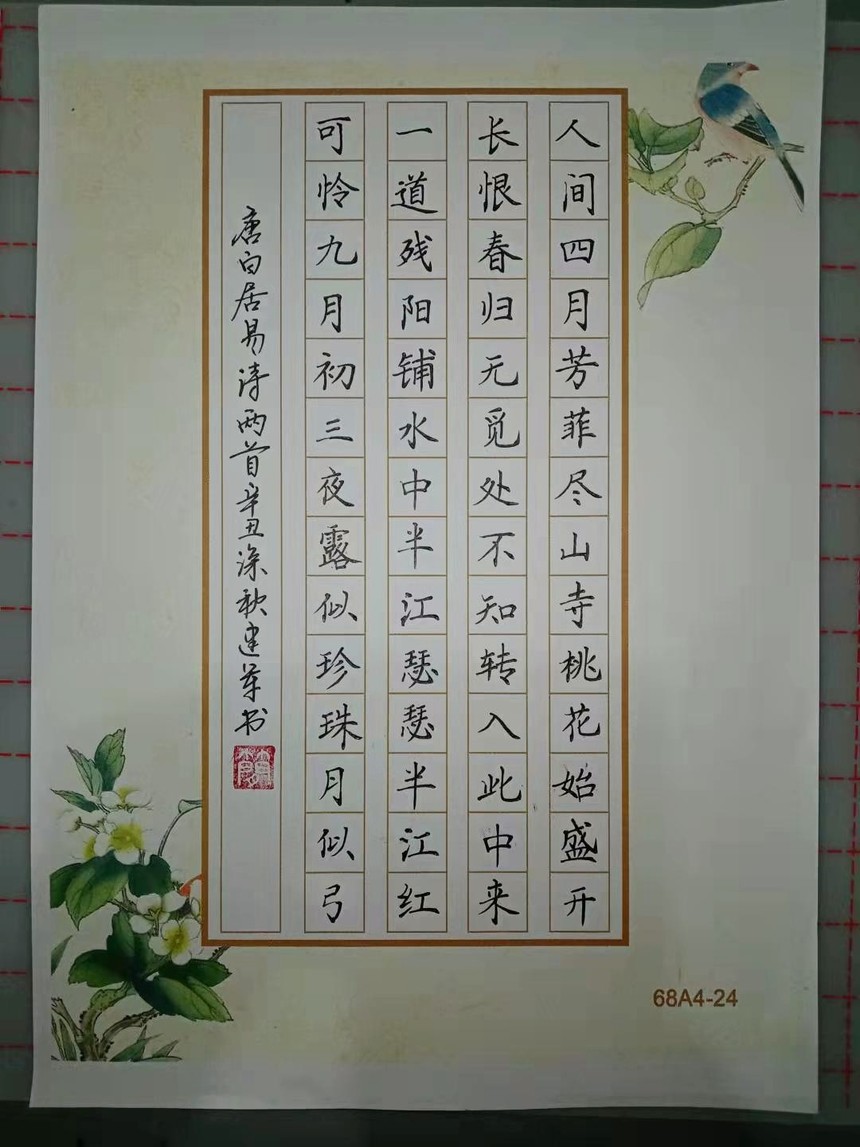 人间四月芳菲尽山寺桃花始盛开
长恨春归无觅处不知转入此中来
一道残阳铺水中半江瑟瑟半江红
可怜九月初三夜露似珍珠月似弓
唐白居易诗两首辛丑深秋建军书
68A4-24